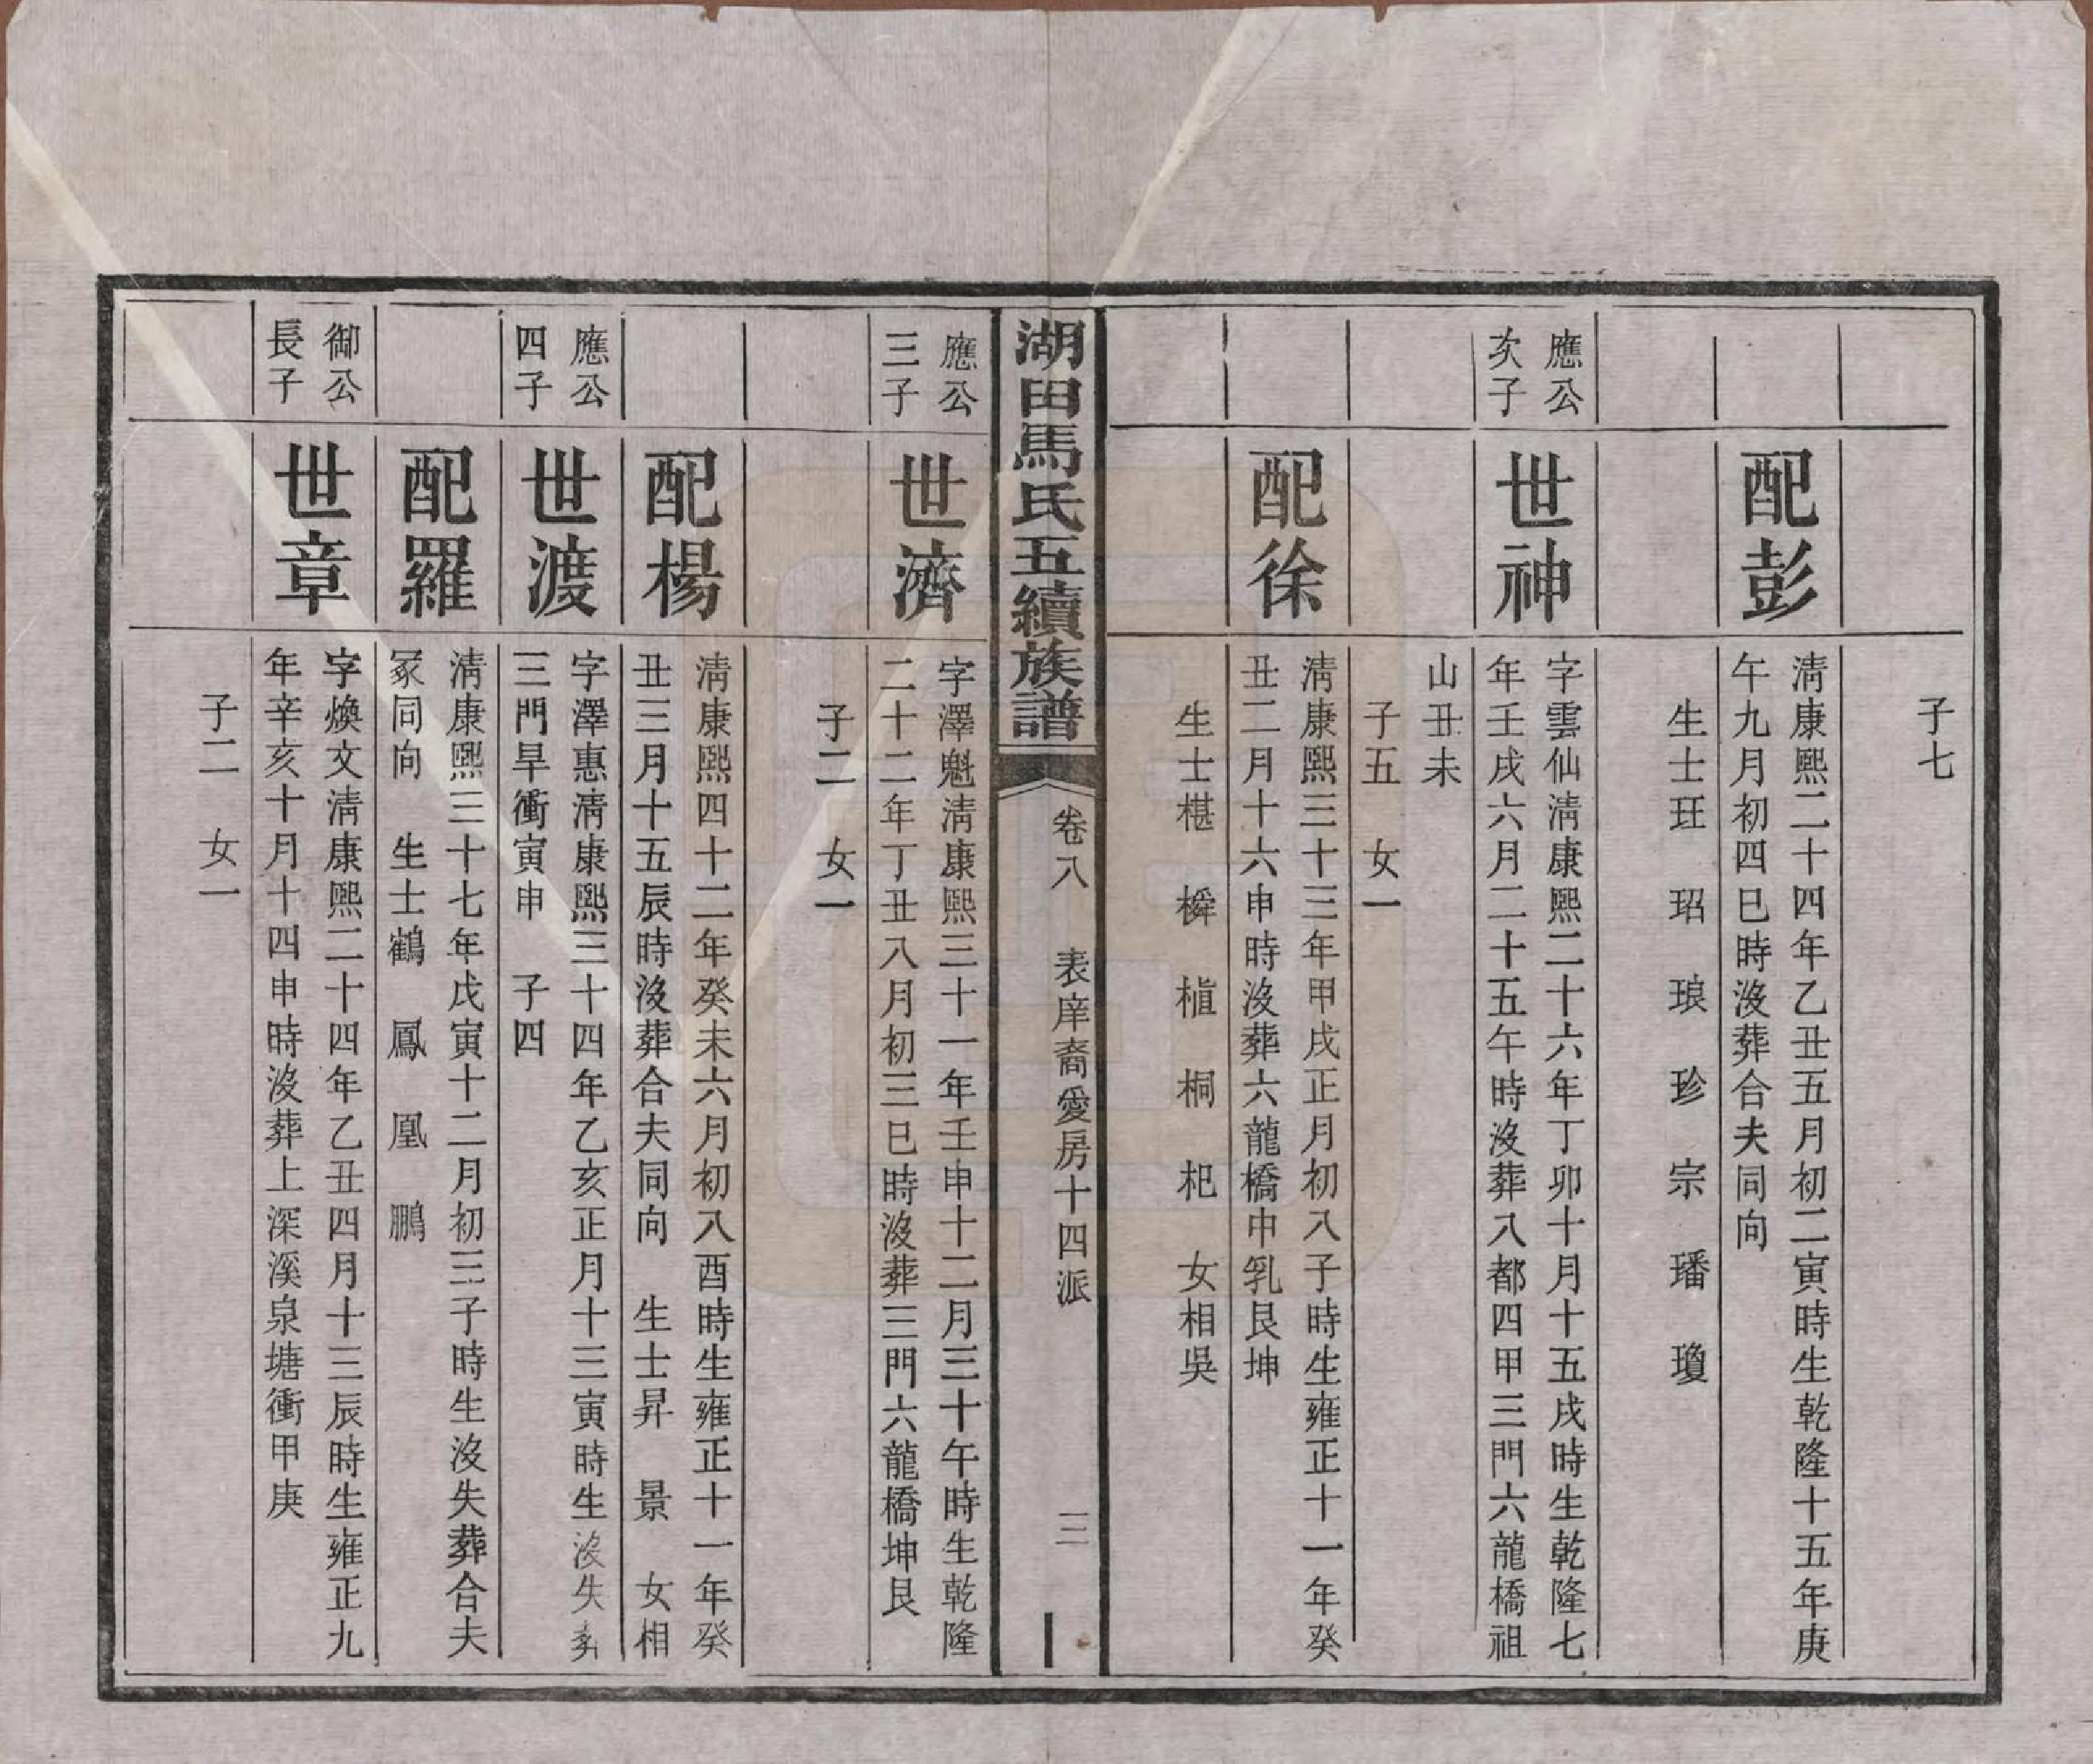 子七
配彭
清康熙二十四年乙丑五月初二寅時生乾隆十五年庚
午九月初四巳時沒葬合夫同向
生士玨 玿 琅 珍 宗 璠 瓊
應公
次子
世神
字雲仙清康熙二十六年丁卯十月十五戌時生乾隆七
年壬戌六月二十五午時沒葬八都四甲三門六龍橋祖
山丑未
子五 女一
配徐
清康熙三十三年甲戌正月初八子時生雍正十一年癸
丑二月十六申時沒葬六龍橋中乳艮坤
生士椹 橓 植 桐 杞 女相吳
湖田馬氏五續族譜
卷八 表庠裔愛房十四派
三
應公
三子
世濟
字澤魁清康熙三十一年壬申十二月三十午時生乾隆
二十二年丁丑八月初三巳時沒葬三門六龍橋坤艮
子二 女一
配楊
清康熙四十二年癸未六月初八酉時生雍正十一年癸
丑三月十五辰時沒葬合夫同向 生士昇 景 女相
應公
四子
世渡
字澤惠清康熙三十四年乙亥正月十三寅時生沒失葬
三門旱衝寅申 子四
配羅
清康熙三十七年戊寅十二月初三子時生沒失葬合夫
冢同向 生士鶴 鳳 凰 鵬
御公
長子
世章
字煥文清康熙二十四年乙丑四月十三辰時生雍正九
年辛亥十月十四申時沒葬上深溪泉塘衝甲庚
子二 女一